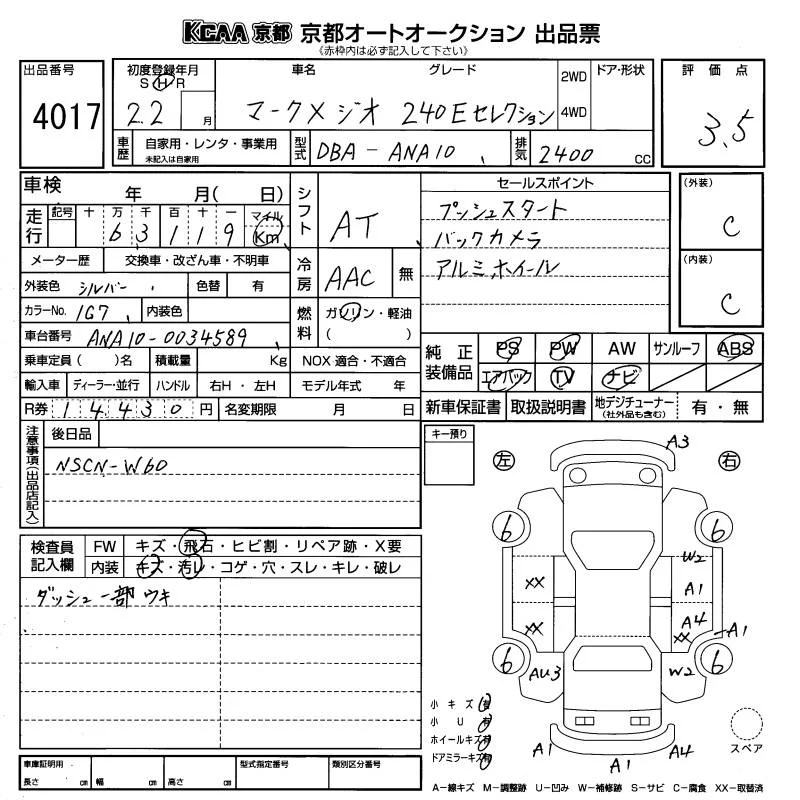 KCAA 京都 京都オートオークション 出品票
《赤枠内は必ず記入して下さい》
出品番号 4017
初度登録年月 S H R 22 月
車名 グレード マークXジオ 240Eセレクション
2WD 4WD ドア・形状
評価点 3.5
車歴 自家用・レンタ・事業用 未記入は自家用
型式 DBA-ANA10
排気 2400 CC
車検 年 月( 日)
シフト AT
セールスポイント
プッシュスタート
バックカメラ
アルミホイール
(外装) C
(内装) C
走行 記号 十 万 千 百 十 一 マイル Km
6 3 1 1 9
メーター歴 交換車・改ざん車・不明車
冷房 AAC 無
外装色 シルバー 色替 有
カラーNo. 1G7 内装色
燃料 ガソリン・軽油 ( )
車台番号 ANA10-0034589
乗車定員( )名 積載量 Kg NOX 適合・不適合
輸入車 ディーラー・並行 ハンドル 右H・左H モデル年式 年
純正装備品 PS PW AW サンルーフ ABS
エアバック TV ナビ
R券 14,430 円 名変期限 月 日
新車保証書 取扱説明書 地デジチューナー (社外品も含む) 有・無
注意事項(出品店記入) 後日品
NSCN-W60
キー預り
左 右
A3
6 6
W2
XX A1
A4
XX XX A1
6 6
AU3 W2
A1 A1 A4
検査員記入欄 FW キズ・飛石・ヒビ割・リペア跡・X要
内装 キズ・汚レ・コゲ・穴・スレ・キレ・破レ
ダッシュ一部ウキ
小キズ 有
小U 有
ホイールキズ 有
ドアミラーキズ 有
スペア
車庫証明用 長さ cm 幅 cm 高さ cm
型式指定番号 類別区分番号
A−線キズ M−調整跡 U−凹み W−補修跡 S−サビ C−腐食 XX−取替済